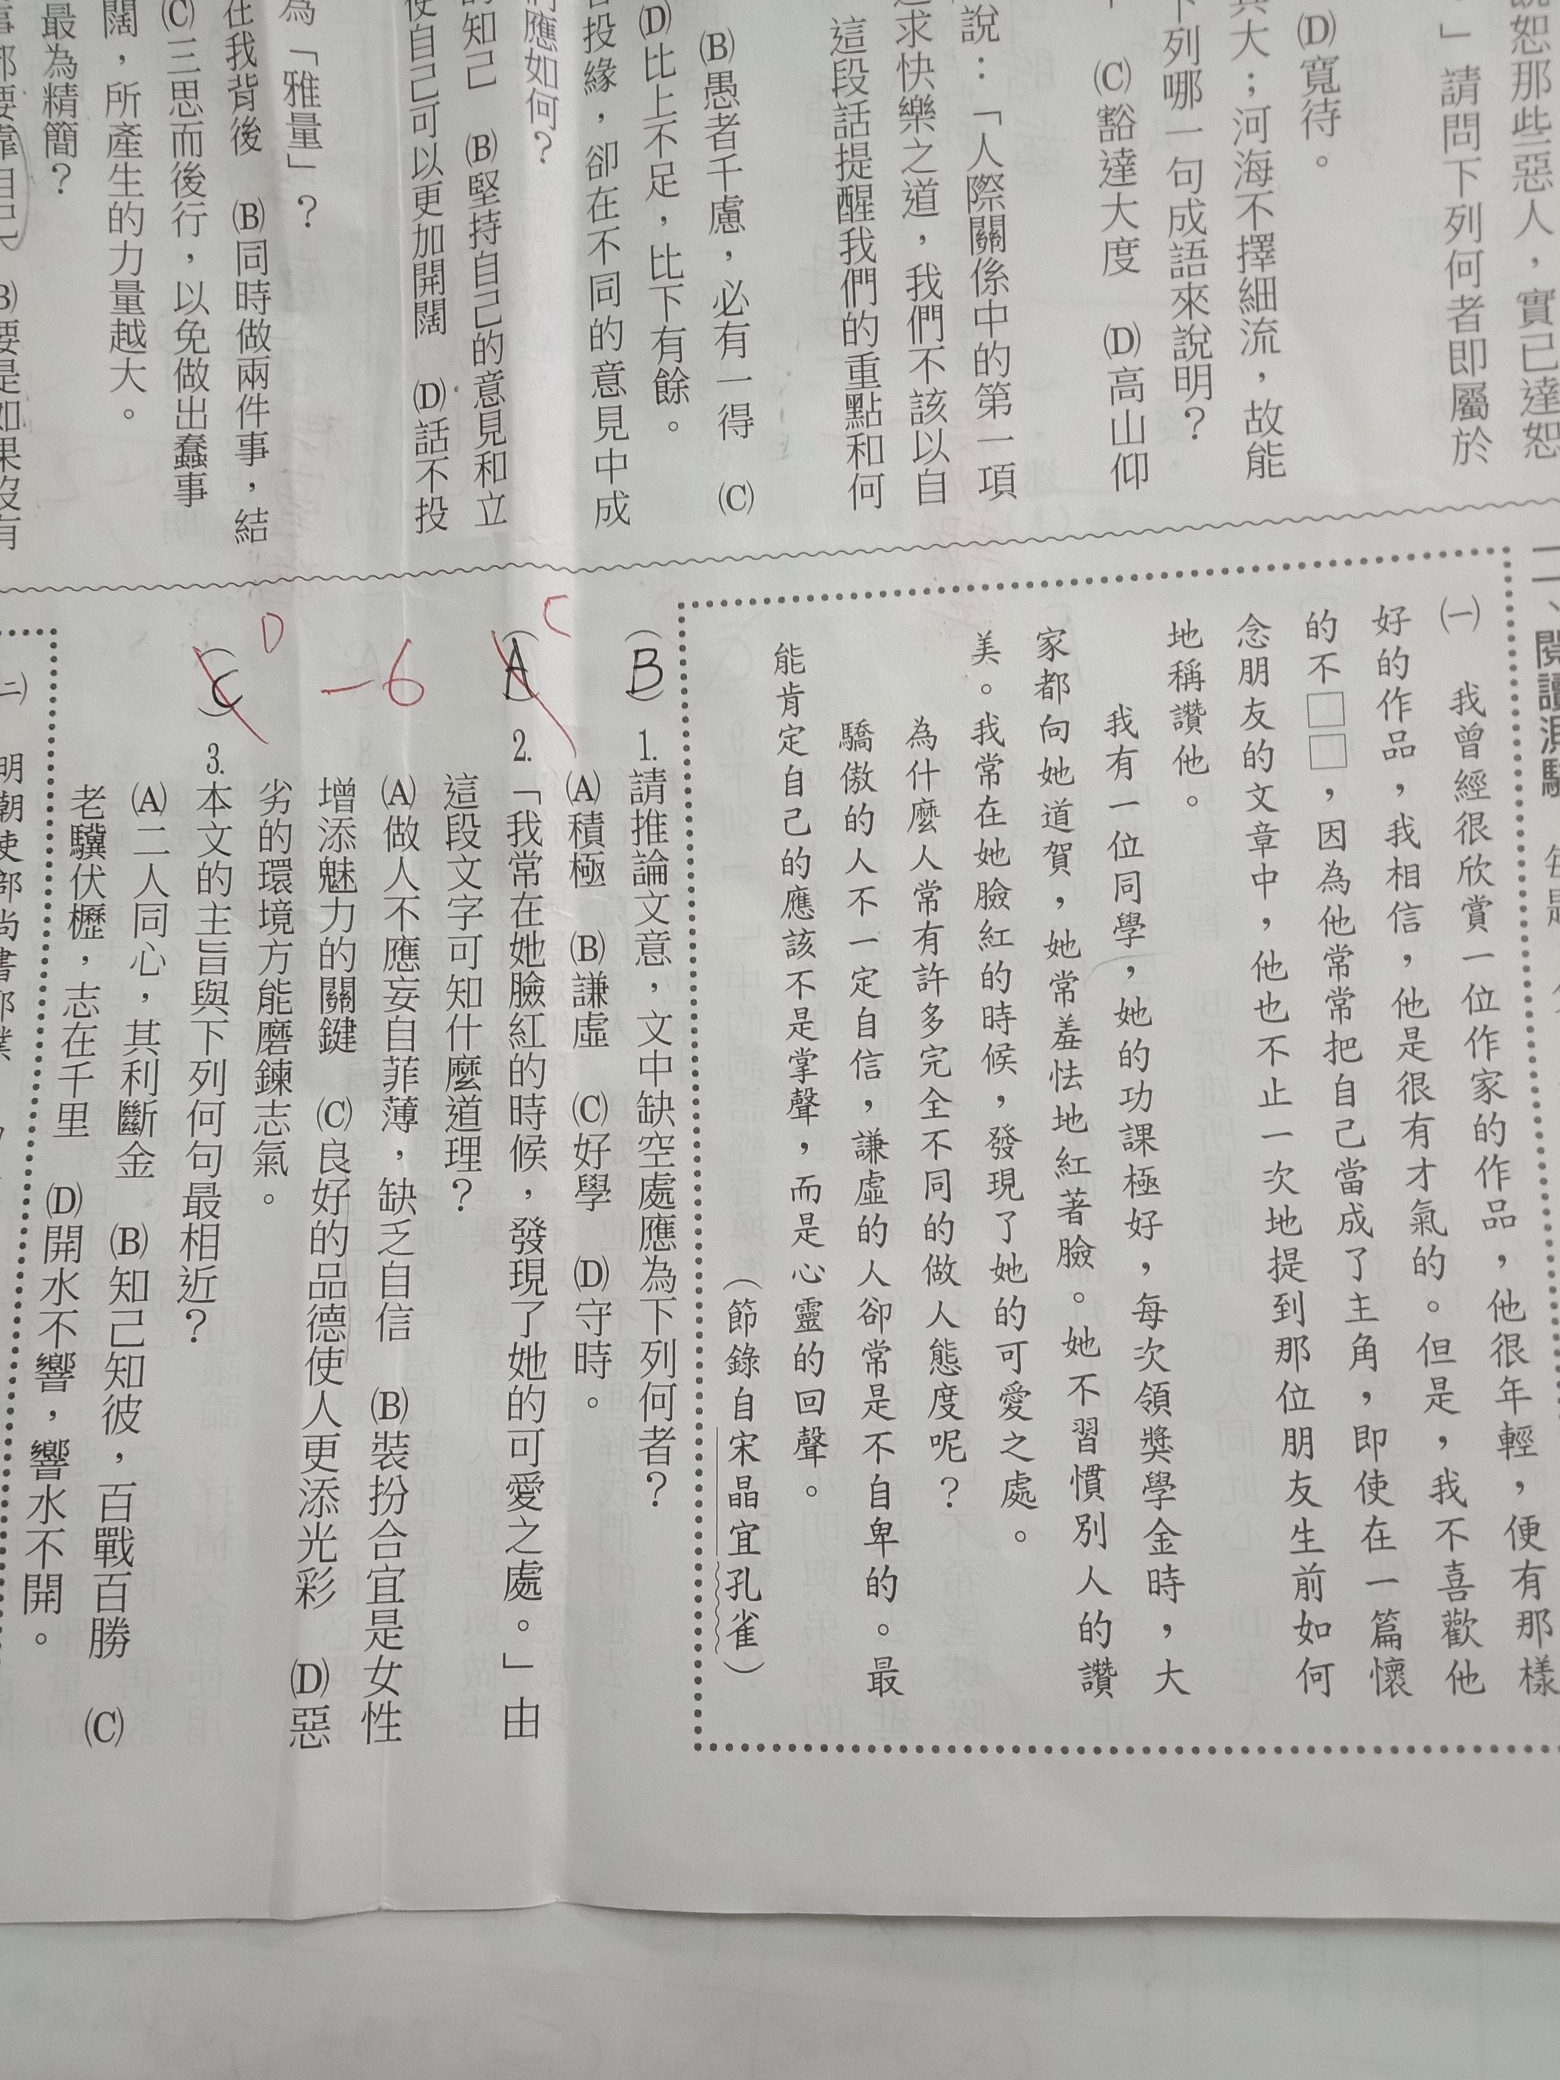 說恕那些惡人，實已達恕
」請問下列何者即屬於
(D)寬待。
其大；河海不擇細流，故能
下列哪一句成語來說明？
(C)豁達大度 (D)高山仰
說：「人際關係中的第一項
追求快樂之道，我們不該以自
這段話提醒我們的重點和何
(B)愚者千慮，必有一得 (C)
(D)比上不足，比下有餘。
投緣，卻在不同的意見中成
們應如何？
的知己 (B)堅持自己的意見和立
使自己可以更加開闊 (D)話不投
為「雅量」？
在我背後 (B)同時做兩件事，結
(C)三思而後行，以免做出蠢事
闊，所產生的力量越大。
最為精簡？
事都要靠自己 (B)要是如果沒有
二、閱讀測驗
(一) 我曾經很欣賞一位作家的作品，他很年輕，便有那樣
好的作品，我相信，他是很有才氣的。但是，我不喜歡他
的不□□，因為他常常把自己當成了主角，即使在一篇懷
念朋友的文章中，他也不止一次地提到那位朋友生前如何
地稱讚他。
我有一位同學，她的功課極好，每次領獎學金時，大
家都向她道賀，她常羞怯地紅著臉。她不習慣別人的讚
美。我常在她臉紅的時候，發現了她的可愛之處。
為什麼人常有許多完全不同的做人態度呢？
驕傲的人不一定自信，謙虛的人卻常是不自卑的。最
能肯定自己的應該不是掌聲，而是心靈的回聲。
（節錄自宋晶宜孔雀）
(B) 1.請推論文意，文中缺空處應為下列何者？
(A)積極 (B)謙虛 (C)好學 (D)守時。
C
(A) 2.「我常在她臉紅的時候，發現了她的可愛之處。」由
這段文字可知什麼道理？
(A)做人不應妄自菲薄，缺乏自信 (B)裝扮合宜是女性
-6
增添魅力的關鍵 (C)良好的品德使人更添光彩 (D)惡
劣的環境方能磨鍊志氣。
D
(C) 3.本文的主旨與下列何句最相近？
(A)二人同心，其利斷金 (B)知己知彼，百戰百勝 (C)
老驥伏櫪，志在千里 (D)開水不響，響水不開。
(二) 明朝吏部尚書